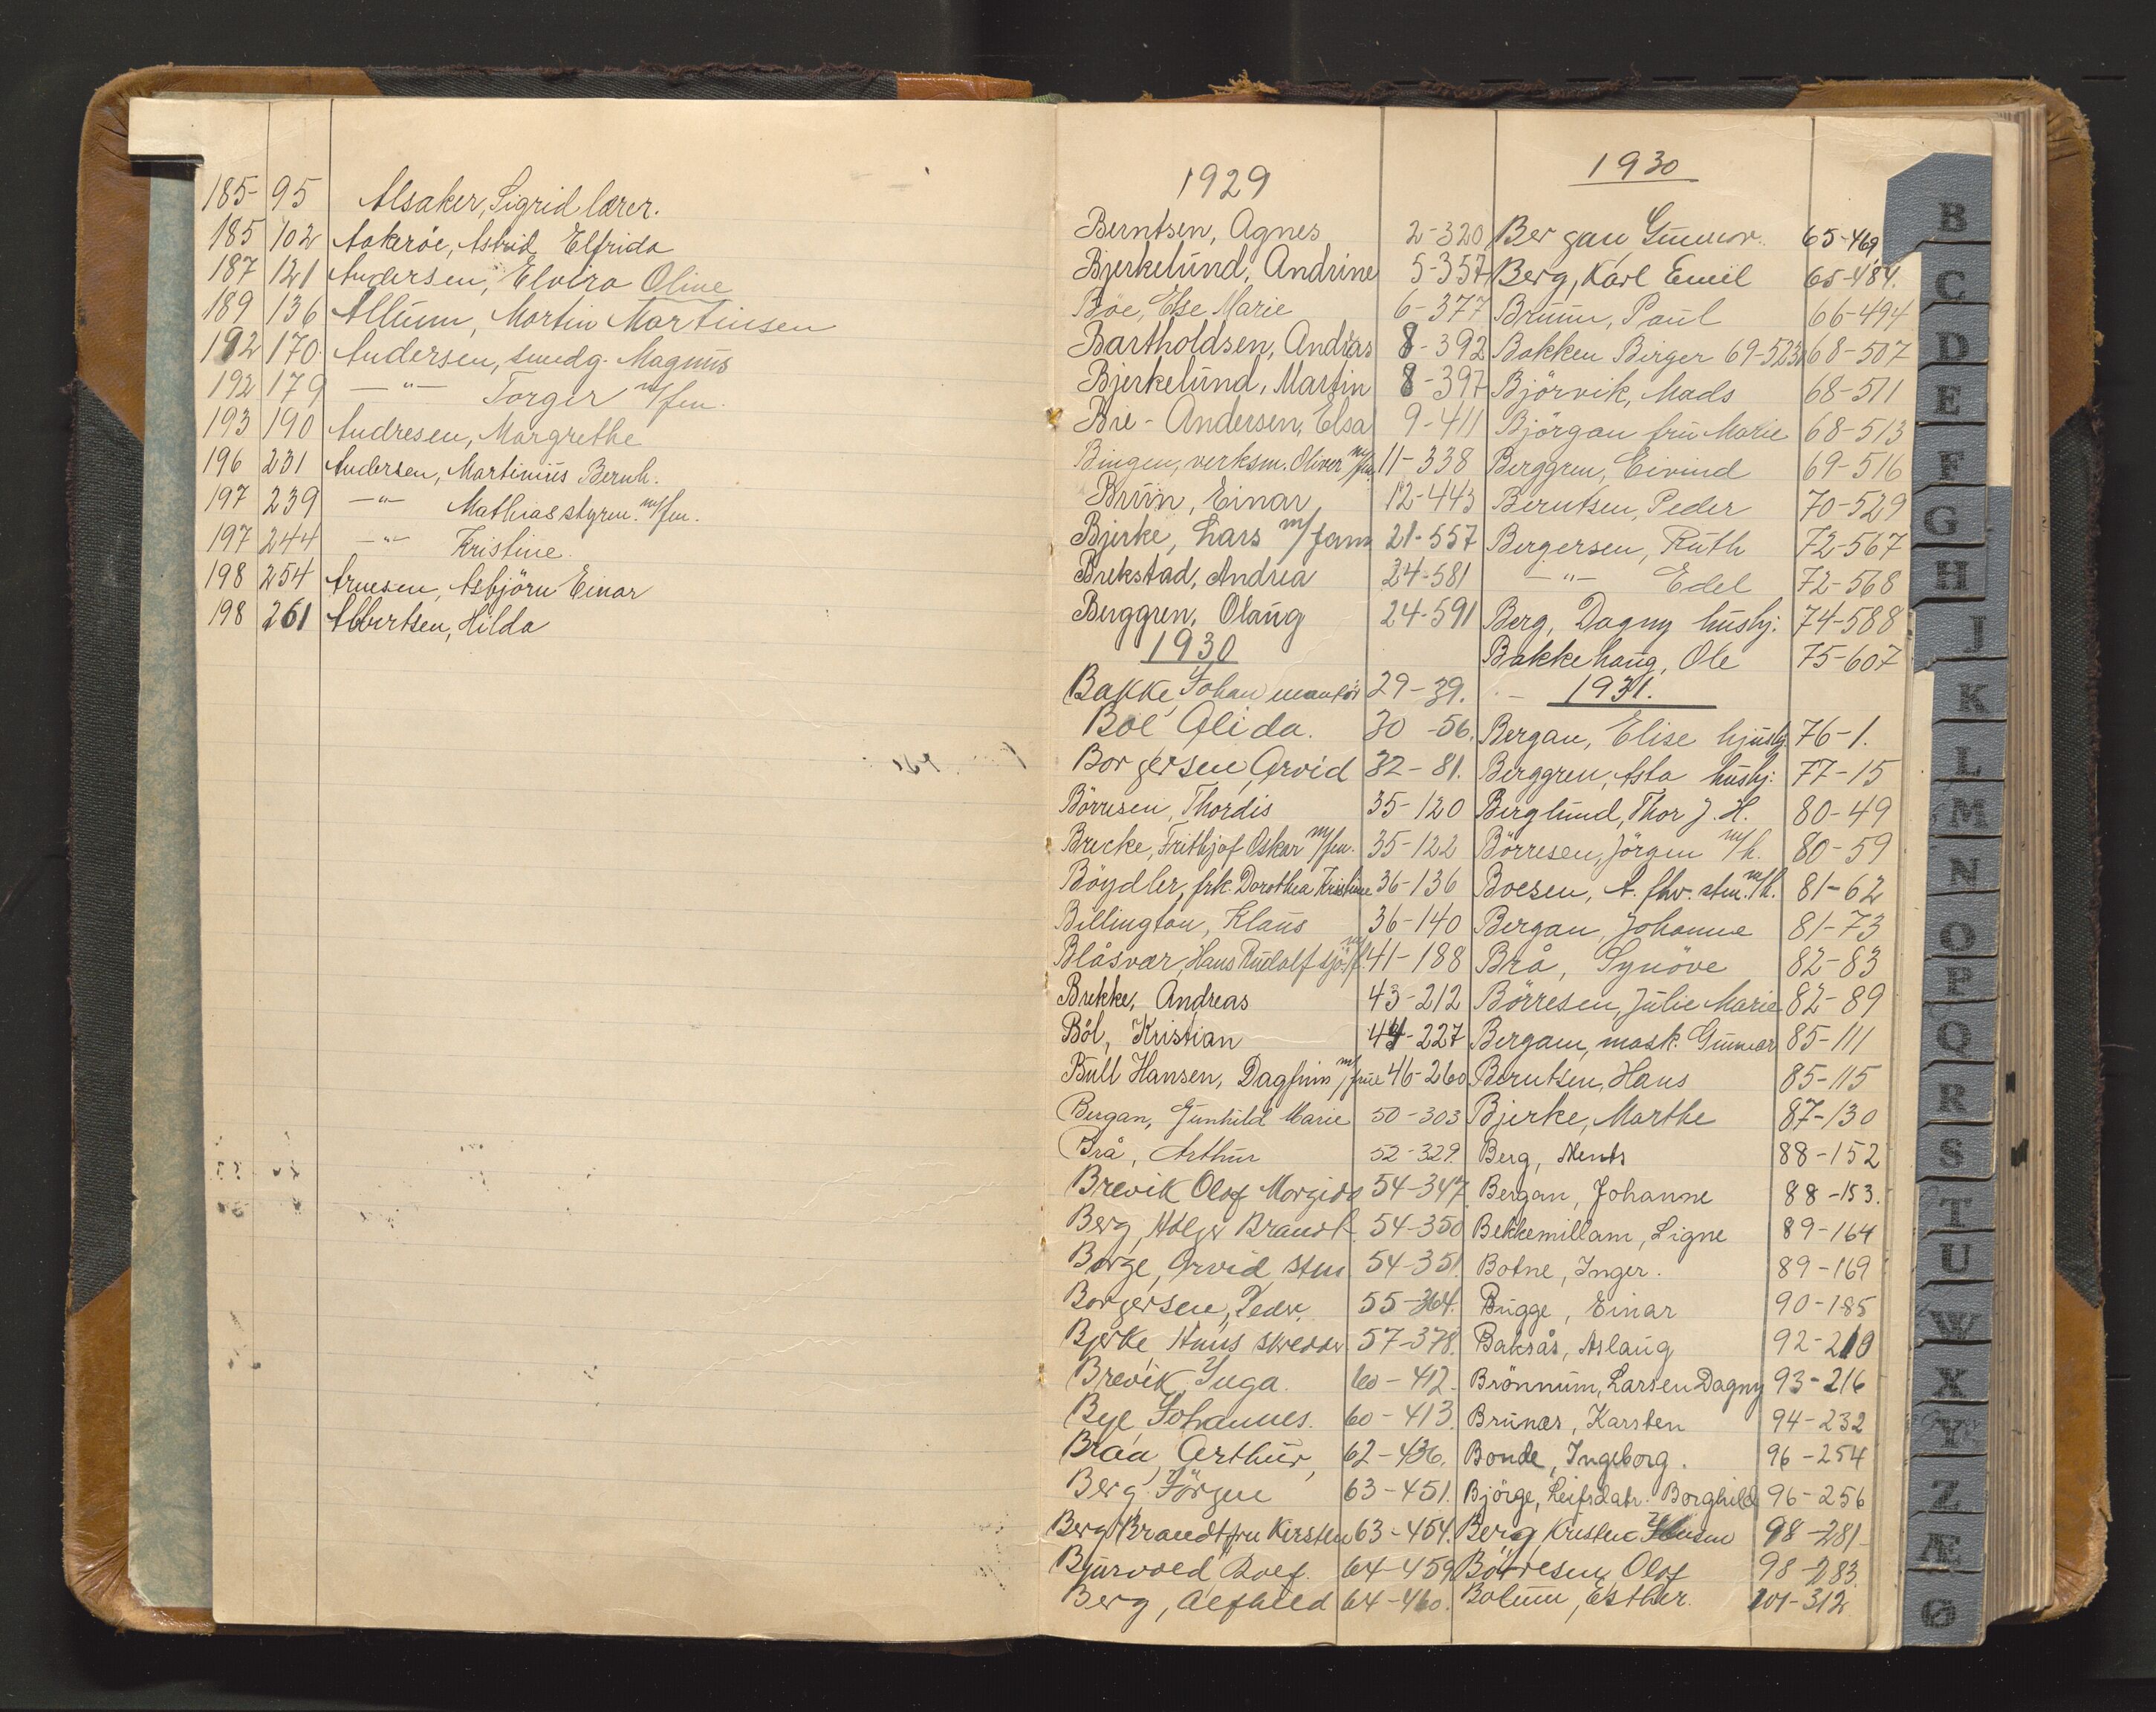 185- 95 Alsaker, Sigrid lærer.
185 102 Aakeröe, Astrid Elfrida
187 121 Andersen, Elvira Oline
189 136 Allum, Martin Martinsen
192 170. Andersen, smedg. Magnus
192 179 —"— Torger m/fm.
193 190 Andresen, Margrethe
196 231 Andersen, Martinius Bernh.
197 239 —"— Mathias styrm. m/fm.
197 244 —"— Kristine.
198 254 Arnesen, Asbjörn Einar
198 261 Albertsen, Hilda
1929
Berntsen, Agnes 2-320
Bjerkelund, Andrine 5-357
Böe, Else Marie 6-377
Bartholdsen, Andreas 8-392
Bjerkelund, Martin 8-397
Bie-Andersen, Elsa 9-411
Bingen, verksm. Oliver m/fm. 11-338
Bruun, Einar 12-443
Bjerke, Lars m/fam 21-557
Brekstad, Andrea 24-581
Berggren, Olaug 24-591
1930
Bakke, Johan 29-39.
Böe Alida. 30-56.
Borgersen Arvid 32-81.
Börresen, Thordis 35-120
Brecke, Frithjof Oskar m/fm. 35-122
Böydler, frk. Dorothea Kristine 36-136
Billington, Klaus 36-140
Blåsvær, Hans Rudolf 41-188
Brekke, Andreas 43-212
Böl, Kristian 44-227
Bull Hansen, Dagfinn m/frue 46-260
Bergan, Gunhild Marie 50-303
Brå, Arthur 52-329.
Brevik Olaf 54-347
Berg, Holger Brandt 54-350
Borge, Arvid stm 54-351.
Borgersen, Peder. 55-364.
Bjerke Hans skredder 57-378.
Brevik Inga. 60-412.
Bye, Johannes. 60-413.
Braa Arthur, 62-436.
Berg Jörgen 63-451.
Berg Brandt fru Kirsten 63-454.
Bjurvold Rolf. 64-459
Berg, Alfhild 64-460.
1930
Bergan, Gunnor. 65-469
Berg, Karl Emil 65-484.
Bruun, Paul 66-494
Bakken Birger 69-523 68-507
Björvik, Mads 68-511
Björgan fru Marie 68-513
Berggren, Eivind 69-516
Berntsen, Peder 70-529
Bergersen, Ruth 72-567
—"— Edel 72-568
Berg, Dagny husbj: 74-588
Bakkehaug, Ole 75-607
1931.
Bergan, Elise hjusbj. 76-1.
Berggren, Asta husbj: 77-15
Berglund, Thor J. H. 80-49
Börresen, Jörgen m/h. 80-59
Boesen, A. fhv. stm. m/h. 81-62
Bergan, Johanne 81-73
Brå, Synöve 82-83
Börresen, Julie Marie 82-89
Bergan, mask. Gunnar 85-111
Berntsen, Hans 85-115
Bjerke, Marthe 87-130
Berg, Nents 88-152
Bergan, Johanne 88-153.
Bekkemillam, Signe 89-164
Botne, Inger. 89-169
Bugge, Einar 90-185
Baksås, Aslaug 92-210
Brönnum, Larsen Dagny 93-216
Brunæs, Karsten 94-232
Bonde, Ingeborg. 96-254
Björge, Leifsdatr. Borghild 96-256
Berg, Kristen 98-281
Börresen, Olaf 98-283.
Bolum, Esther. 101-312
B
C
D
E
F
G
H
J
K
L
M
N
O
P
Q
R
S
T
U
W
X
Y
Z
Æ
Ø